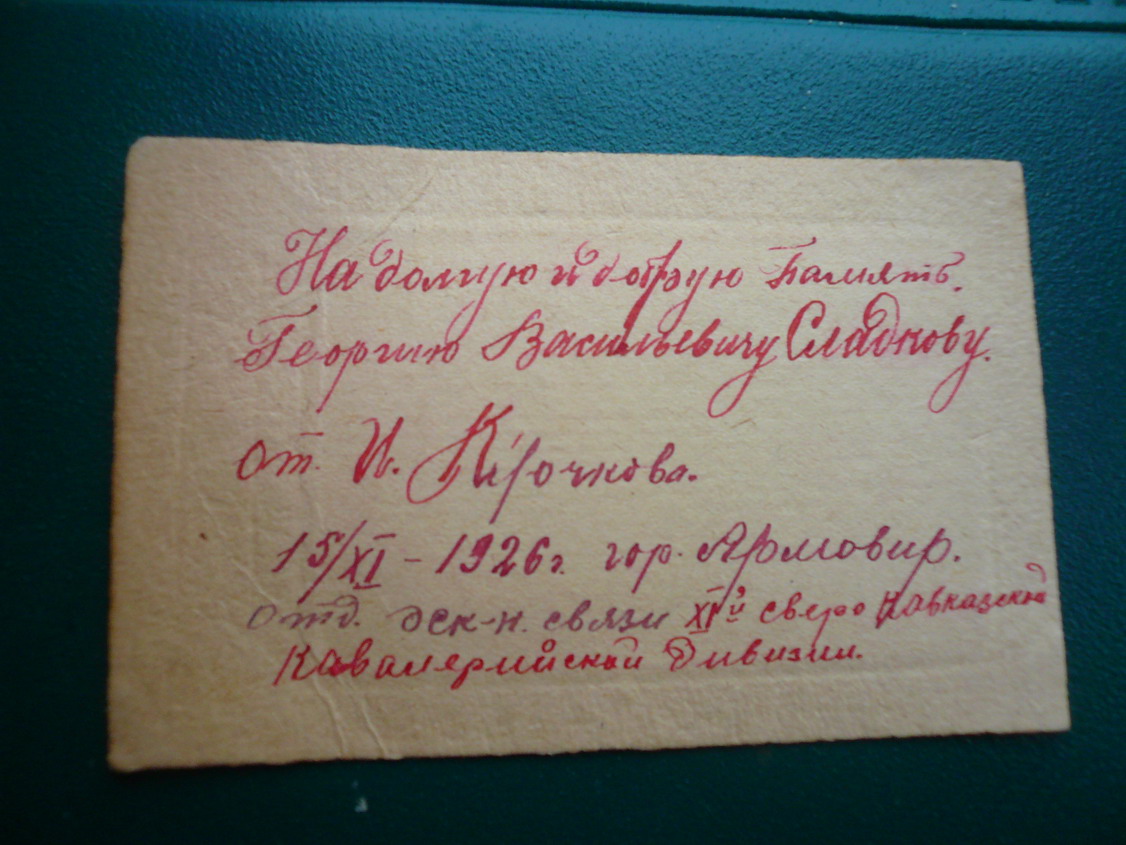 На долгую и добрую Память.
Георгию Васильевичу Сладкову.
от. И. Крочкова.
15/XI – 1926 г. гор. Армовир.
отд. эск-н. связи XIй сверо Кавказской
Кавалерийской Дивизии.